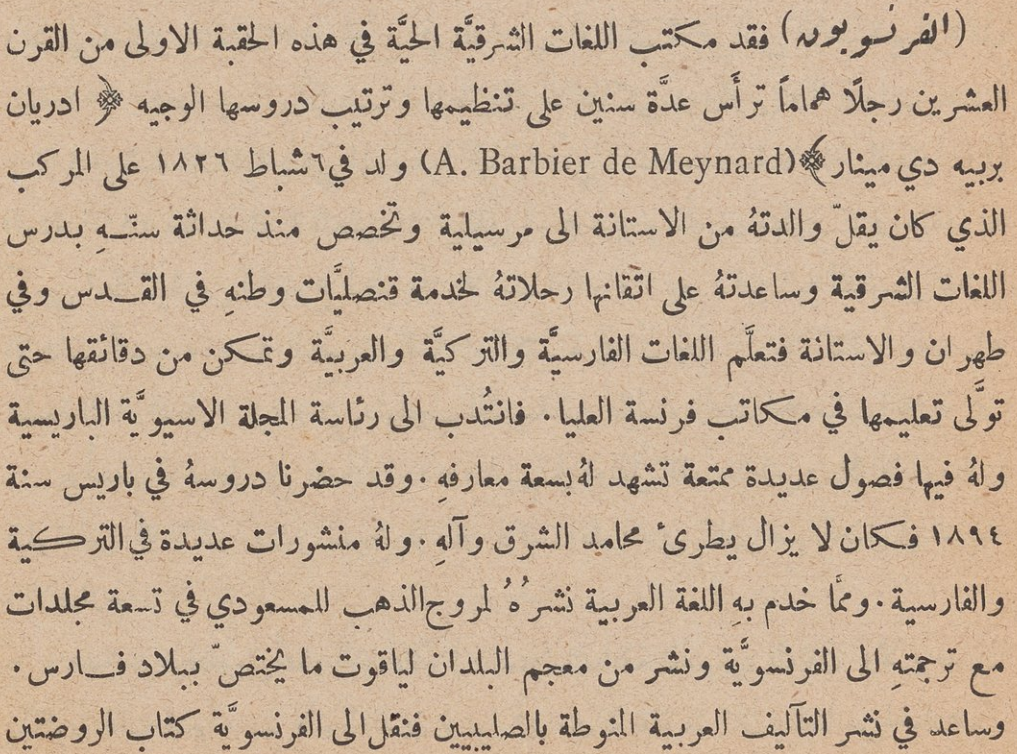 (الفرنسويون) فقد مكتب اللغات الشرقيَّة الحيَّة في هذه الحقبة الاولى من القرن
العشرين رجلًا هماماً ترأَّس عدَّة سنين على تنظيمها وترتيب دروسها الوجيه ﴿ ادريان
بربيه دي مينار ﴾ (A. Barbier de Meynard) ولد في ٦ شباط ١٨٢٦ على المركب
الذي كان يقلّ والدتهُ من الاستانة الى مرسيلية وتخصص منذ حداثة سنّهِ بدرس
اللغات الشرقية وساعدتهُ على اتّقانها رحلاتهُ لخدمة قنصليَّات وطنهِ في القدس وفي
طهران والاستانة فتعلَّم اللغات الفارسيَّة والتركيَّة والعربيَّة وتمكن من دقائقها حتى
تولَّى تعليمها في مكاتب فرنسة العليا. فانتُدب الى رئاسة المجلة الاسيويَّة الباريسية
ولهُ فيها فصول عديدة ممتعة تشهد لهُ بسعة معارفهِ. وقد حضرنا دروسهُ في باريس سنة
١٨٩٤ فكان لا يزال يطرئ محامد الشرق وآلهِ. ولهُ منشورات عديدة في التركية
والفارسية. وممَّا خدم بهِ اللغة العربية نشرُهُ لمروج الذهب للمسعودي في تسعة مجلدات
مع ترجمتهِ الى الفرنسويَّة ونشر من معجم البلدان لياقوت ما يختصّ ببلاد فارس.
وساعد في نشر التآليف العربية المنوطة بالصليبيين فنقل الى الفرنسويَّة كتاب الروضتين